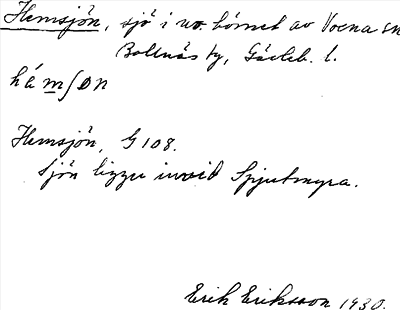 Hemsjön, sjö i no. hörnet av Voxna sn
Bollnäs tg, Gävleb. l.
hémʃɒn
Hemsjön, G 108.
Sjön ligger invid Spjutmyra.
Erik Eriksson 1930.